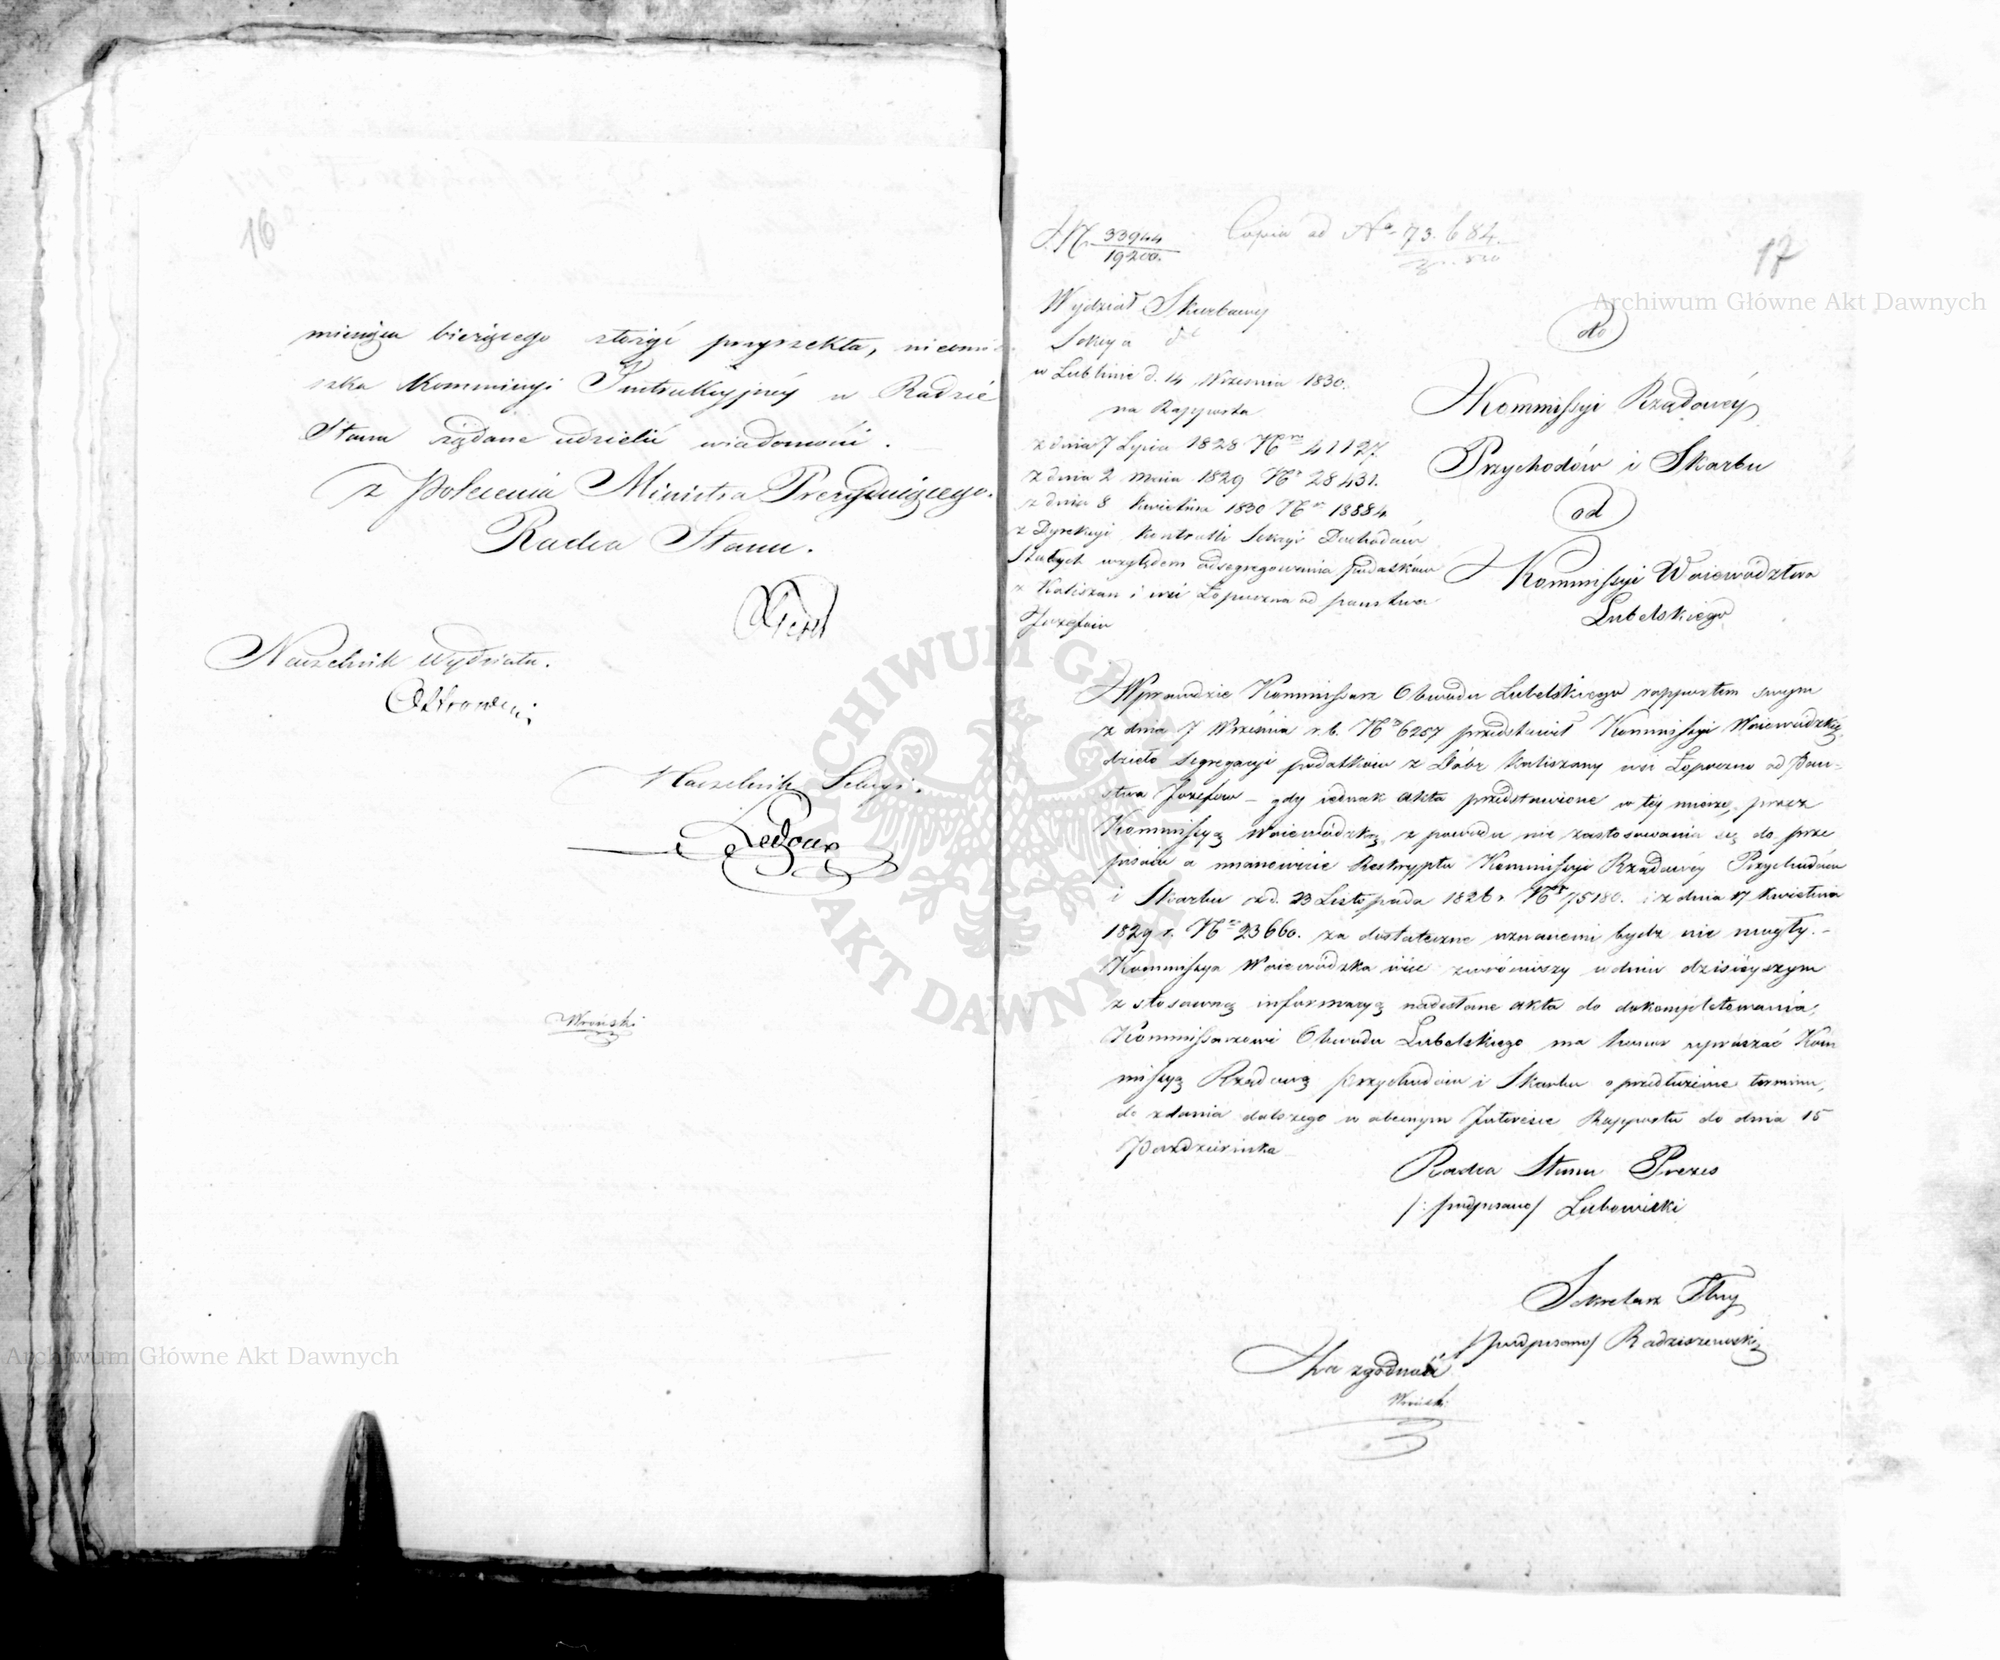 16
miesiąca bieżącego stósź przyrzekła, nieomie-
szka Kommissyi Instrukcyjnéy w Radzie
Stanu żądane udzielić wiadomości.
z Polecenia Ministra Prezydującego.
Radca Stanu.
Naczelnik Wydziału.
Naczelnik Sekcyi.
Wroński
17
Copia ad Nr 73.684.
N 33944
19200.
Wydział Skarbowy
Sekcya
w Lublinie d. 14 Września 1830.
na Rapporta
z dnia 7 Lipca 1828 Nro 41127.
z dnia 2 Maia 1829 Nr 28431.
z dnia 8 Kwietnia 1830 Nro 13884
z Dyrekcyi Kontrolli Sekcyi Dochodów
Stałych względem odsegregowania podatków
z Kaliszan i wsi Łopoczna od państwa
Józefów
do
Kommissyi Rządowéy
Przychodów i Skarbu
od
Kommissyi Woiewództwa
Lubelskiego
Wprawdzie Kommissarz Obwodu Lubelskiego rapportem swym
z dnia 7 Września r.b. Nro 6257 przedstawił Kommissyi Woiewódzkiéy
dzieło segregacyi podatków z Dóbr Kaliszany wsi Łopoczno od Pań-
stwa Józefów – gdy iednak akta przedstawione w téy mierze, przez
Kommissyą Woiewódzką z powodu nie zastosowania się do prze
pisów a mianowicie Reskryptu Kommissyi Rządowéy Przychodów
i Skarbu z d. 23 Listopada 1826 r. Nro 75180. i z dnia 17 Kwietnia
1829 r. Nro 23660. za dostateczne uznanemi bydź nie mogły. –
Kommissya Woiewódzka więc zwróciwszy w dniu dzisieyszym
z stosowną informacyą nadesłane akta do dokompletowania,
Kommissarzowi Obwodu Lubelskiego ma honor upraszać Kom
missyą Rządową Przychodów i Skarbu o przedłużenie terminu,
do zdania dalszego w obecnym Interesie Rapportu do dnia 15
Października
Radca Stanu Prezes
/: podpisano/ Lubowiecki
Sekretarz Jlny
/podpisano/ Radziszewski
Za zgodność
Wroński
Archiwum Główne Akt Dawnych
Archiwum Główne Akt Dawnych
ARCHIWUM GŁÓWNE AKT DAWNYCH